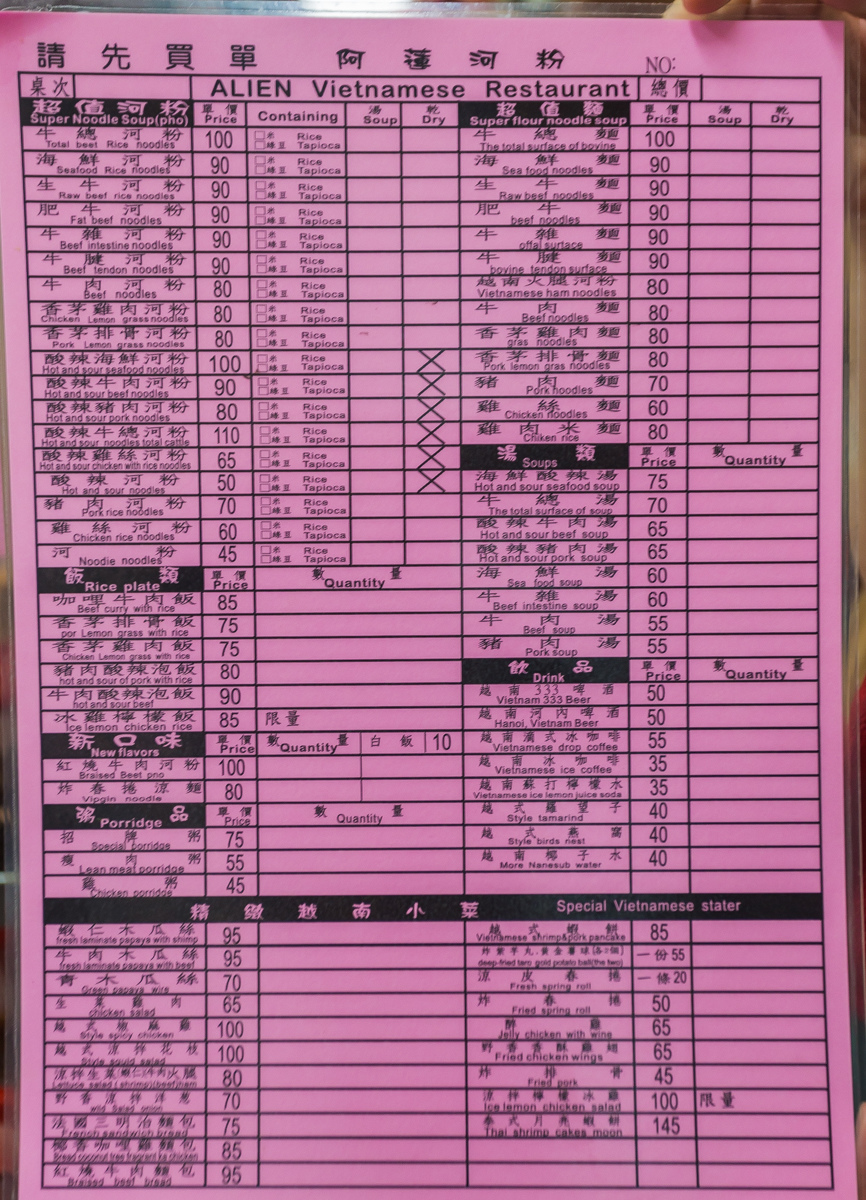 請先買單 阿蓮河粉 NO:
桌次 ALIEN Vietnamese Restaurant 總價
超值河粉 Super Noodle Soup(pho) 單價 Price Containing 湯 Soup 乾 Dry
牛總河粉 Total beef Rice noodles 100 □米 Rice □綠豆 Tapioca
海鮮河粉 Seafood Rice noodles 90 □米 Rice □綠豆 Tapioca
生牛河粉 Raw beef rice noodles 90 □米 Rice □綠豆 Tapioca
肥牛河粉 Fat beef noodles 90 □米 Rice □綠豆 Tapioca
牛雜河粉 Beef intestine noodles 90 □米 Rice □綠豆 Tapioca
牛腱河粉 Beef tendon noodles 90 □米 Rice □綠豆 Tapioca
牛肉河粉 Beef noodles 80 □米 Rice □綠豆 Tapioca
香茅雞肉河粉 Chicken Lemon grass noodles 80 □米 Rice □綠豆 Tapioca
香茅排骨河粉 Pork Lemon grass noodles 80 □米 Rice □綠豆 Tapioca
酸辣海鮮河粉 Hot and sour seafood noodles 100 □米 Rice □綠豆 Tapioca
酸辣牛肉河粉 Hot and sour beef noodles 90 □米 Rice □綠豆 Tapioca
酸辣豬肉河粉 Hot and sour pork noodles 80 □米 Rice □綠豆 Tapioca
酸辣牛總河粉 Hot and sour noodles total cattle 110 □米 Rice □綠豆 Tapioca
酸辣雞絲河粉 Hot and sour chicken with rice noodles 65 □米 Rice □綠豆 Tapioca
酸辣河粉 Hot and sour noodles 50 □米 Rice □綠豆 Tapioca
豬肉河粉 Pork rice noodles 70 □米 Rice □綠豆 Tapioca
雞絲河粉 Chicken rice noodles 60 □米 Rice □綠豆 Tapioca
河粉 Noodie noodles 45 □米 Rice □綠豆 Tapioca
飯類 Rice plate 單價 Price 數量 Quantity
咖哩牛肉飯 Beef curry with rice 85
香茅排骨飯 por Lemon grass with rice 75
香茅雞肉飯 Chicken Lemon grass with rice 75
豬肉酸辣泡飯 hot and sour of pork with rice 80
牛肉酸辣泡飯 hot and sour beef 90
冰雞檸檬飯 Ice lemon chicken rice 85 限量
新口味 New flavors 單價 Price 數量 Quantity 白飯 10
紅燒牛肉河粉 Braised Beef pno 100
炸春捲涼麵 Vipgin noodle 80
粥品 Porridge 單價 Price 數量 Quantity
招牌粥 Special porridge 75
瘦肉粥 Lean meat porridge 55
雞粥 Chicken porridge 45
超值麵 Super flour noodle soup 單價 Price 湯 Soup 乾 Dry
牛總麵 The total surface of bovine 100
海鮮麵 Sea food noodles 90
生牛麵 Raw beef noodles 90
肥牛麵 beef noodles 90
牛雜麵 offal surtace 90
牛腱麵 bovine tendon surface 90
越南火腿河粉 Vietnamese ham noodles 80
牛肉麵 Beef noodles 80
香茅雞肉麵 gras noodles 80
香茅排骨麵 Pork lemon gras noodles 80
豬肉麵 Pork noodles 70
雞絲麵 Chicken noodles 60
雞肉米 Chiken rice 80
湯類 Soups 單價 Price 數量 Quantity
海鮮酸辣湯 Hot and sour seafood soup 75
牛總湯 The total surface of soup 70
酸辣牛肉湯 Hot and sour beef soup 65
酸辣豬肉湯 Hot and sour pork soup 65
海鮮湯 Sea food soup 60
牛雜湯 Beef intestine soup 60
牛肉湯 Beef soup 55
豬肉湯 Pork soup 55
飲品 Drink 單價 Price 數量 Quantity
越南333啤酒 Vietnam 333 Beer 50
越南河內啤酒 Hanoi, Vietnam Beer 50
越南滴式冰咖啡 Vietnamese drop coffee 55
越南冰咖啡 Vietnamese ice coffee 35
越南蘇打檸檬水 Vietnamese ice lemon juice soda 35
越式羅望子 Style tamarind 40
越式燕窩 Style birds nest 40
越南椰子水 More Nanesub water 40
精緻越南小菜 Special Vietnamese stater
蝦仁木瓜絲 fresh laminate papaya with shimp 95
牛肉木瓜絲 fresh laminate papaya with beef 95
青木瓜絲 Green papaya wire 70
生菜雞肉 chicken salad 65
越式椒麻雞 Style spicy chicken 100
越式涼拌花枝 Style squid salad 100
涼拌生菜(蝦仁)牛肉火腿 Lettuce salad (shrimp)(beef)ham 80
野香涼拌洋蔥 wild Salad onion 70
法國三明治麵包 French sandwich bread 75
椰香咖哩雞麵包 Bread coconut tree fragrant ka chicken 85
紅燒牛肉麵包 Braised beef bread 95
越式蝦餅 Vietnamese shrimp&pork pancake 85
炸紫芋丸.黃金薯球(各2個) deep-fried taro gold potato ball(the two) 一份55
涼皮春捲 Fresh spring roll 一條20
炸春捲 Fried spring roll 50
醉雞 Jelly chicken with wine 65
野香香酥雞翅 Fried chicken wings 65
炸排骨 Fried pork 45
涼拌檸檬冰雞 Ice lemon chicken salad 100 限量
泰式月亮蝦餅 Thai shrimp cakes moon 145